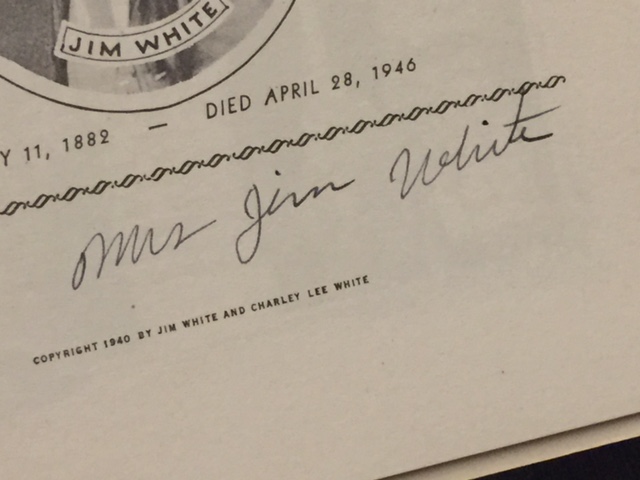 JIM WHITE
Y 11, 1882 — DIED APRIL 28, 1946
Mrs Jim White
COPYRIGHT 1940 BY JIM WHITE AND CHARLEY LEE WHITE